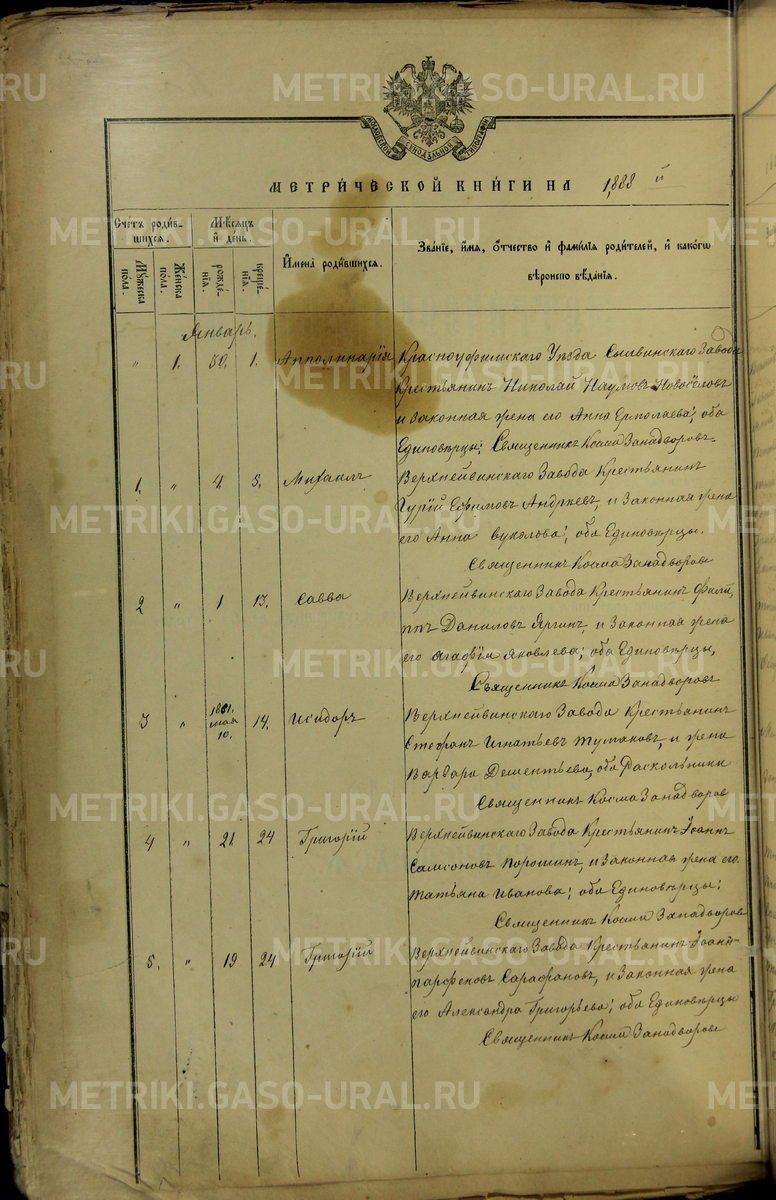 METRIKI.GASO-URAL.RU
МОСКОВСКОЙ СѴНОДАЛЬНОЙ ТИПОГРАФІИ
МЕТРИ́ЧЕСКОЙ КНИ́ГИ НА 1,888 й
Сче́тъ роди́в-
шихсѧ.
Мѣ́сѧцъ
и҆ де́нь.
И҆мена̀ роди́вшихсѧ.
Зва́нїе, и҆́мѧ, ѻ҆́тчество и҆ фами́лїѧ роди́телей, и҆ како́гѡ
вѣроисповѣ́данїѧ.
Мꙋ́жеска
по́ла.
Же́нска
по́ла.
рожде́-
нїѧ.
креще́-
нїѧ.
Январь.
" 1. 30. 1. Апполинарія Красноуфимскаго Уѣзда Сылвинскаго Завода
Крестьянинъ Николай Наумовъ Новосёловъ
и законная жена его Анна Ермолаева; оба
Единовѣрцы; Священникъ Косма Занадворовъ.
1. " 4. 5. Михаилъ Верхнейвинскаго Завода Крестьянинъ
Гурій Ефимовъ Андреевъ, и Законная жена
его Анна Вуколова; оба Единовѣрцы.
Священникъ Косма Занадворовъ
2 " 1 13. Савва Верхнейвинскаго Завода Крестьянинъ Фили,
ппъ Даниловъ Яргинъ, и Законная жена
его Агафія Яковлева; оба Единовѣрцы,
Священникъ Косма Занадворовъ
3 " 1861. мая 10. 14. Исидоръ Верхнейвинскаго Завода Крестьянинъ
Стефанъ Игнатьевъ Тумаковъ, и жена
Варвара Дементьева, оба Раскольники
Священникъ Косма Занадворовъ
4 " 21 24 Григорій Верхнейвинскаго Завода Крестьянинъ Іоаннъ
Самсоновъ Порошинъ, и Законная жена его
Татьяна Иванова; оба Единовѣрцы;
Священникъ Косма Занадворовъ
5. " 19 24 Григорій Верхнейвинскаго Завода Крестьянинъ Іоаннъ
Парфеновъ Сарафановъ, и Законная жена
его Александра Григорьева; оба Единовѣрцы
Священникъ Косма Занадворовъ